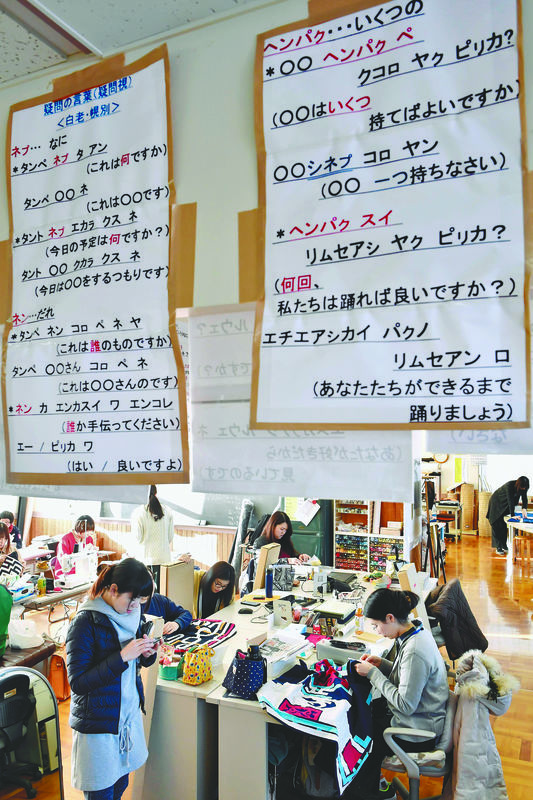 疑問の言葉(疑問視)
<白老・幌別>
ネプ… なに
*タンペ ネプ タ アン
(これは何ですか)
タンペ 〇〇 ネ
(これは〇〇です)
*タント ネプ エカラ クス ネ
(今日の予定は何ですか?)
タント 〇〇 クカラ クス ネ
(今日は〇〇をするつもりです)
ネン…だれ
*タンペ ネン コロ ペ ネ ヤ
(これは誰のものですか)
タンペ 〇〇さん コロ ペ ネ
(これは〇〇さんのです)
*ネン カ エンカスイ ワ エンコレ
(誰か手伝ってください)
エー / ピリカ ワ
(はい / 良いですよ)
ヘンパク・・・いくつの
*〇〇 ヘンパク ペ
クコロ ヤク ピリカ?
(〇〇はいくつ
持てばよいですか)
〇〇シネプ コロ ヤン
(〇〇 一つ持ちなさい)
*ヘンパク スイ
リムセアシ ヤク ピリカ?
(何回、
私たちは踊れば良いですか?)
エチエアシカイ パクノ
リムセアン ロ
(あなたたちができるまで
踊りましょう)
ルウェ?
ですか?)
(あなたが好きだから
見ているのです)